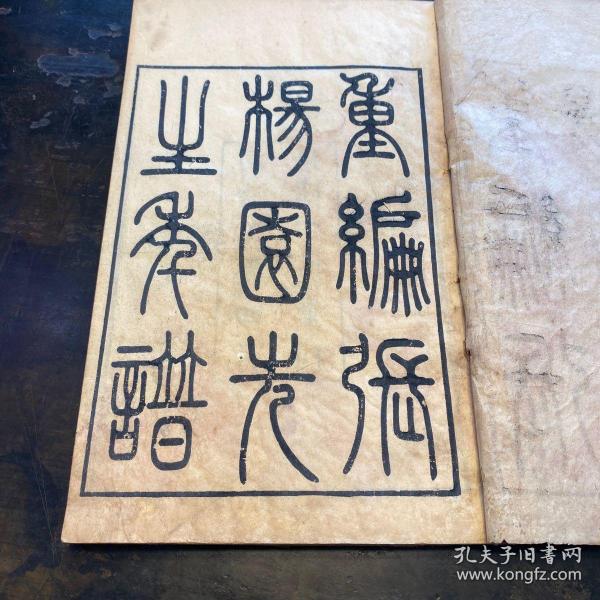 重編張
楊園先
生年譜
孔夫子旧书网
www.kongfz.com